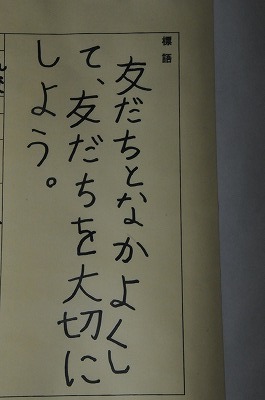 標語
友だちとなかよくし
て、友だちを大切に
しよう。